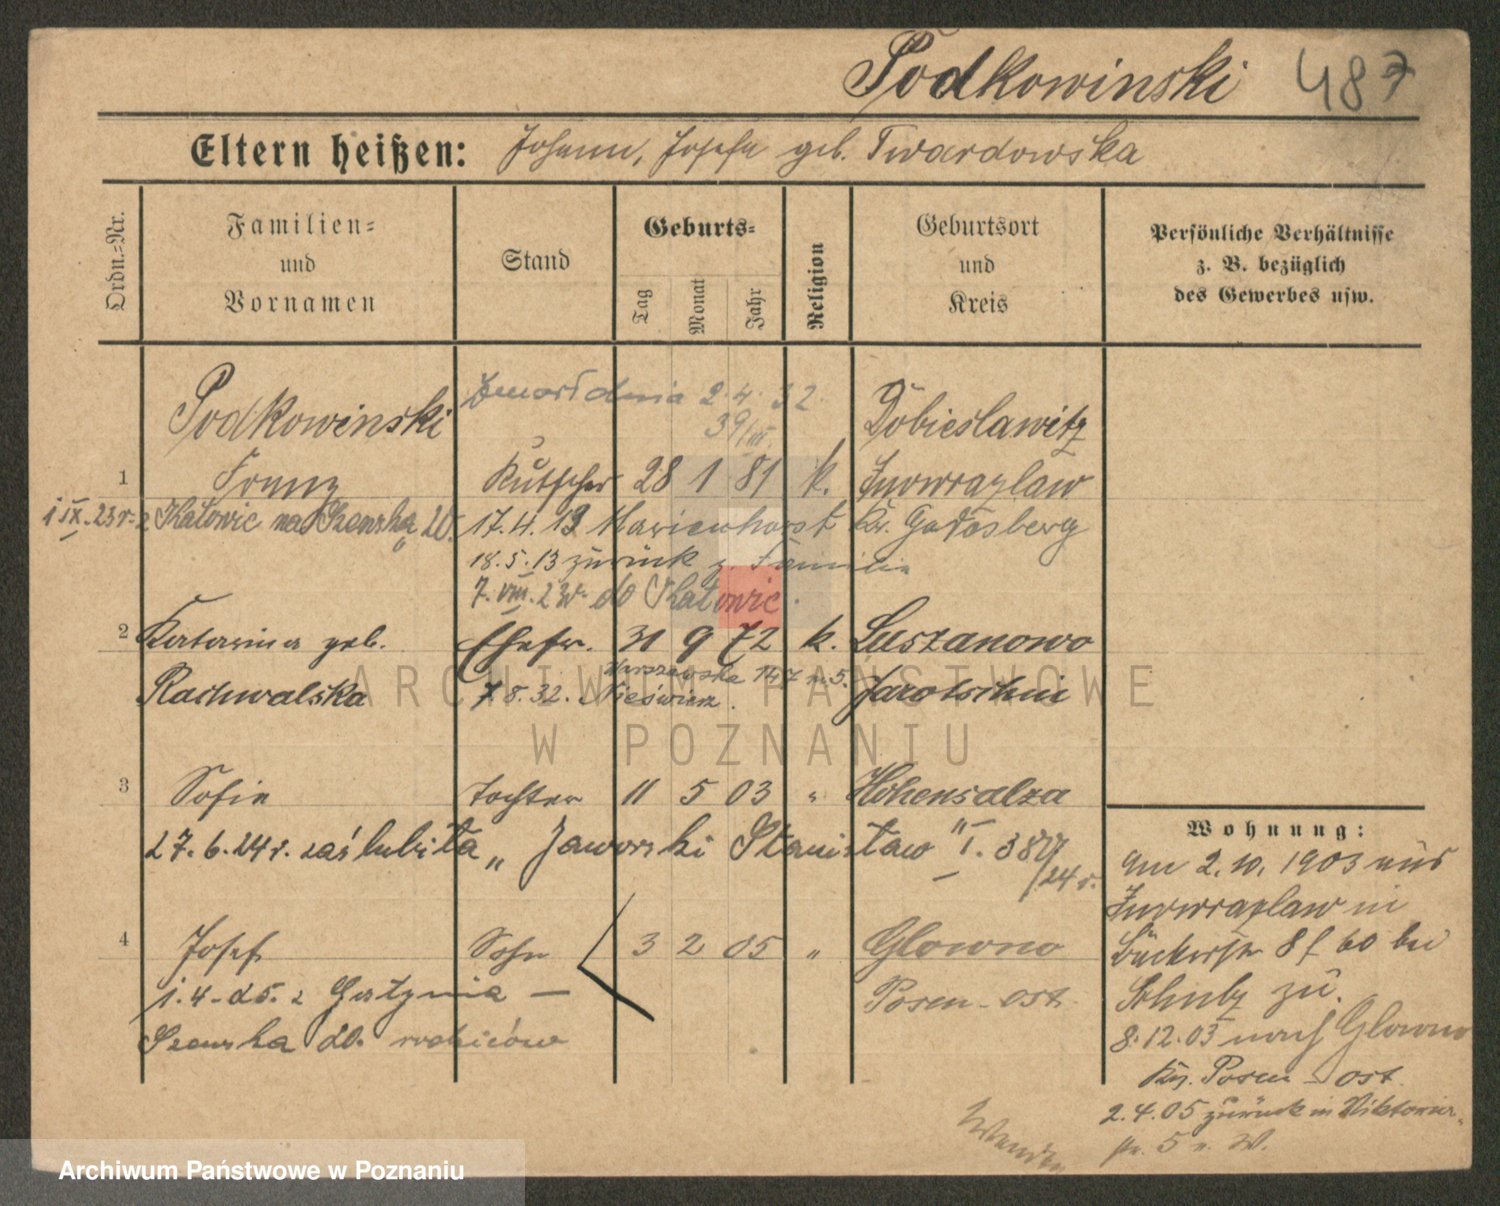 Podkowinski 487
Eltern heißen: Johann, Josefa geb. Twardowska
Ordn.-Nr.
Familien- und Vornamen
Stand
Geburts-
Tag Monat Jahr
Religion
Geburtsort und Kreis
Persönliche Verhältnisse z. B. bezüglich des Gewerbes usw.
Podkowinski Zmarł dnia 2.4.32. Dobieslawitz
39/III.
1 Franz Kutscher 28 1 81 k. Inowrazlaw
1 IX. 23 r. z Katowic na Szewska 20. 17.4.13 Marienhorst Kr. Godesberg
18.5.13 zurück z. Familie
7. VIII. 23 r. do Katowic.
2 Katarina geb. Ehefr. 31 9 72 k. Luszanowo
Warszawska 147 m 5.
Rachwalska 7.8.32. Nieświez. Jarotschin
3 Sofie Tochter 11 5 03 " Hohensalza
27.6.24 r. zaślubiła „Jaworski Stanisław" I. 380/24 r.
4 Josef Sohn 3 2 05 " Glowno
1.4.25. z Gostynia — Posen-ost.
Szewska 20. rodziców
Wohnung:
Am 2.10.1903 aus
Inowrazlaw in
Bäckerstr 8 f bo bei
Schulz zu.
8.12.03 nach Glowno
Kr. Posen-ost.
2.4.05 zurück in Viktoria-
str. 5 n. W.
Wenden
ARCHIWUM PAŃSTWOWE
W POZNANIU
Archiwum Państwowe w Poznaniu